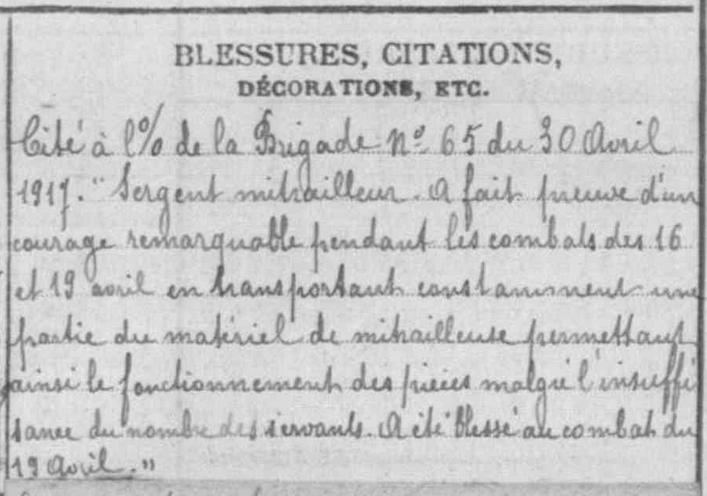 BLESSURES, CITATIONS,
DÉCORATIONS, ETC.
Cité à l'O/ de la Brigade Nº 65 du 30 Avril
1917. "Sergent mitrailleur. A fait preuve d'un
courage remarquable pendant les combats des 16
et 19 avril en transportant constamment une
partie du matériel de mitrailleuse permettant
ainsi le fonctionnement des pièces malgré l'insuffi
sance du nombre des servants. A été blessé au combat du
19 Avril."